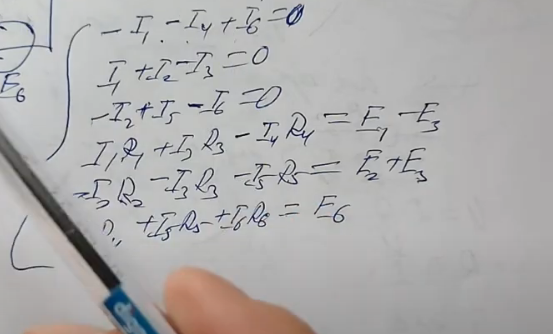 -I₁ - I₄ + I₆ = 0
I₁ + I₂ - I₃ = 0
-I₂ + I₅ - I₆ = 0
I₁R₁ + I₃R₃ - I₄R₄ = E₁ - E₃
-I₂R₂ - I₃R₃ - I₅R₅ = E₂ + E₃
+ I₅R₅ + I₆R₆ = E₆
E₆